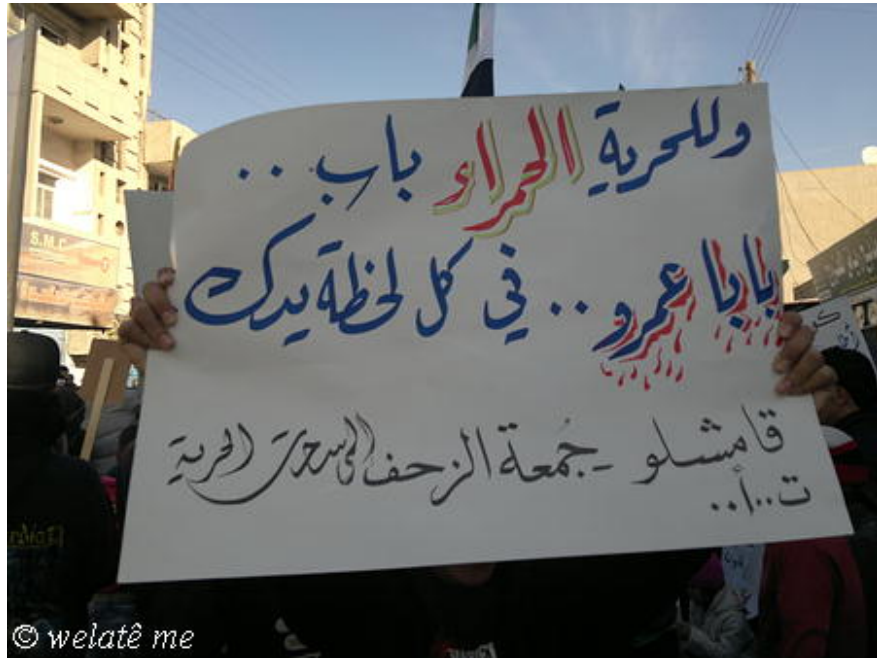 وللحرية الحمراء باب ..
بابا عمرو .. في كل لحظة يدك
قامشلو - جُمعة الزحف إلى ساحات الحرية
ت .. أ ..
S.M.C
© welatê me